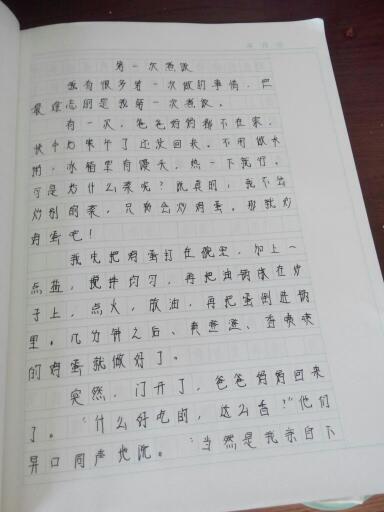 第一次煮饭
我有很多第一次做的事情，但
最难忘的是我第一次煮饭。
有一次，爸爸妈妈都不在家，
快中午了还没回来。不用做木
，冰箱里有馒头，热一下就行，
可是炒什么菜呢？说真的，我不会
炒别的菜，只会炒鸡蛋。那就炒
鸡蛋吧！
我先把鸡蛋打在碗里，加上一
点盐，搅拌均匀，再把油锅放在炉
子上，点火，放油，再把蛋倒进锅
里。几分钟之后、黄澄澄、香喷喷
的鸡蛋就做好了。
突然，门开了，爸爸妈妈回来
了。“什么好吃的，这么香？”他们
异口同声地说。“当然是我亲自下